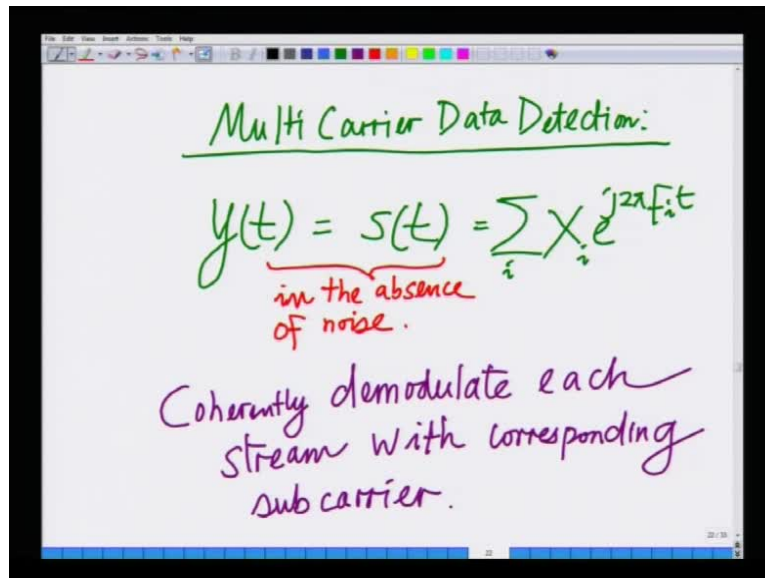 File Edit View Insert Actions Tools Help
Multi Carrier Data Detection:
y(t) = s(t) = ∑_i X_i e^{j2πf_i t}
in the absence
of noise.
Coherently demodulate each
stream with corresponding
subcarrier.
22